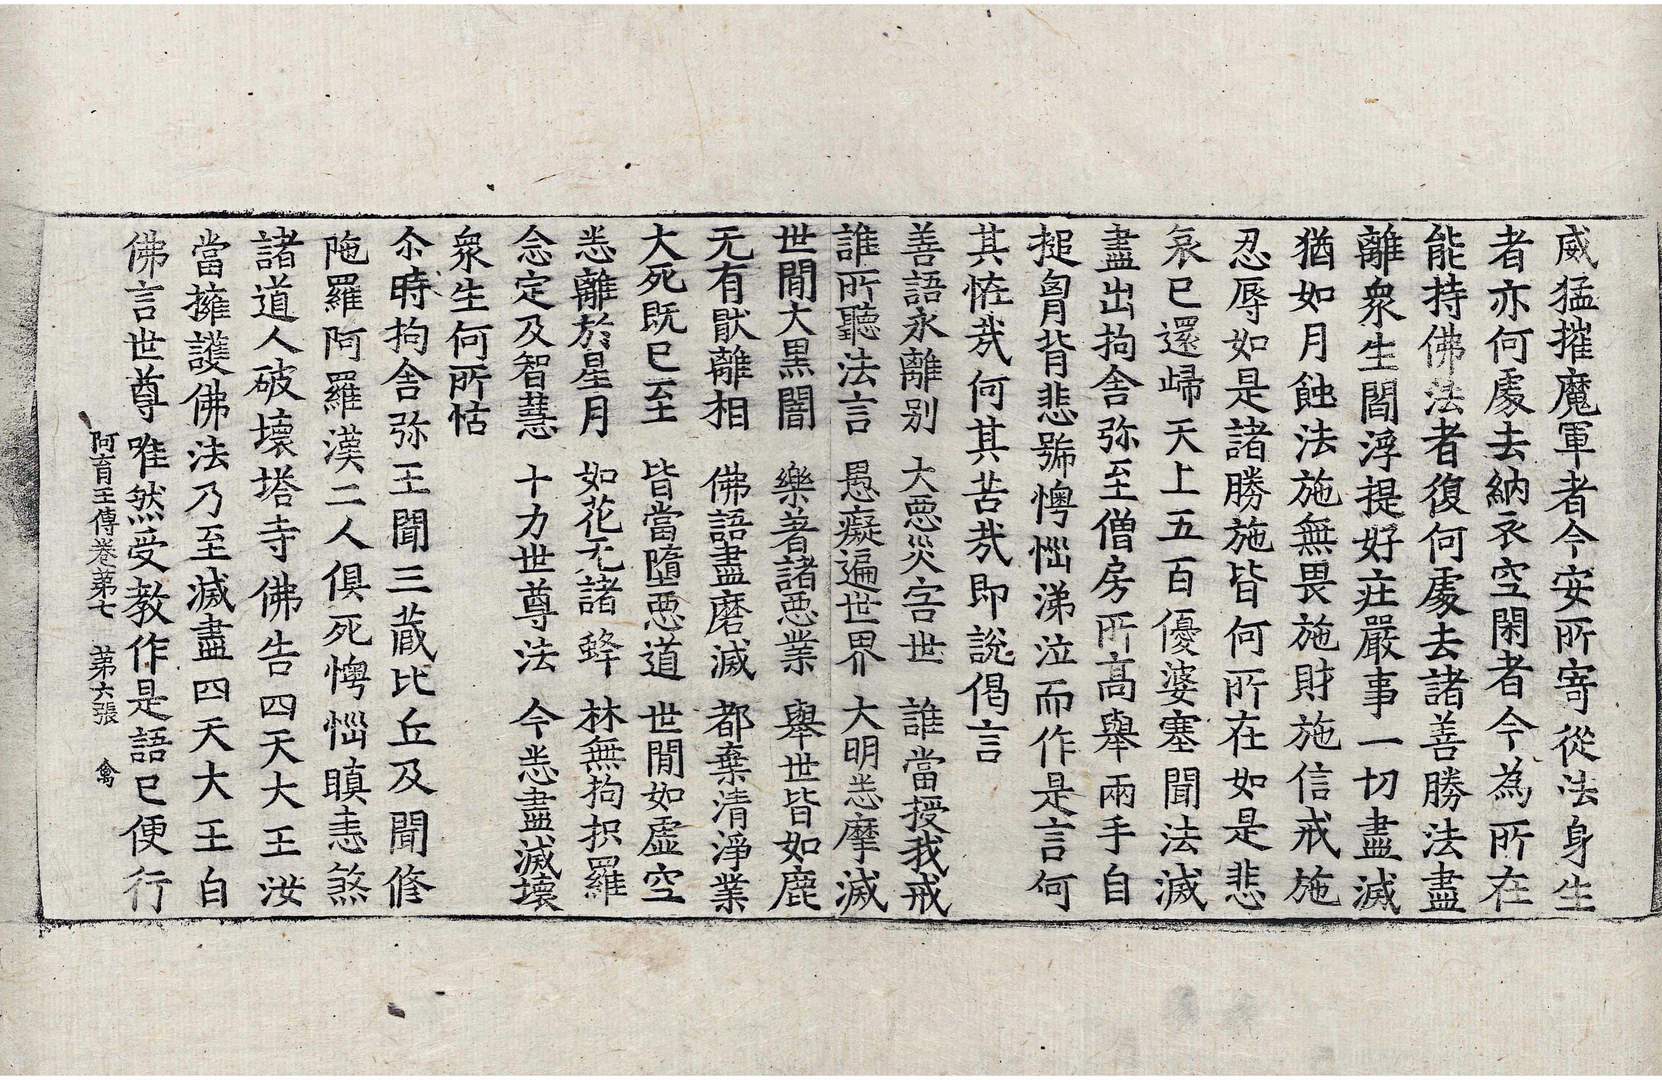 威猛摧魔軍者今安所寄從法身生
者亦何處去納衣空閑者今為所在
能持佛法者復何處去諸善勝法盡
離衆生閻浮提好庄嚴事一切盡滅
猶如月蝕法施無畏施財施信戒施
忍辱如是諸勝施皆何所在如是悲
哀已還歸天上五百優婆塞聞法滅
盡出拘舍弥至僧房所高舉兩手自
搥匈背悲號懊惱涕泣而作是言何
其恠㢤何其苦㢤即說偈言
善語永離別　大惡災害世　誰當授我戒
誰所聽法言　愚癡遍世界　大明悉摩滅
世閒大黒闇　樂著諸惡業　舉世皆如鹿
无有猒離相　佛語盡磨滅　都棄清淨業
大死既已至　皆當墮惡道　世閒如虛空
悉離於星月　如花无諸蜂　林無拘抧羅
念定及智慧　十力世尊法　今悉盡滅壞
衆生何所怙
尒時拘舍弥王聞三藏比丘及聞修
陁羅阿羅漢二人俱死懊惱瞋恚煞
諸道人破壞塔寺佛告四天大王汝
當擁護佛法乃至滅盡四天大王白
佛言世尊唯然受教作是語已便行
阿育王傳卷第七　第六張　禽